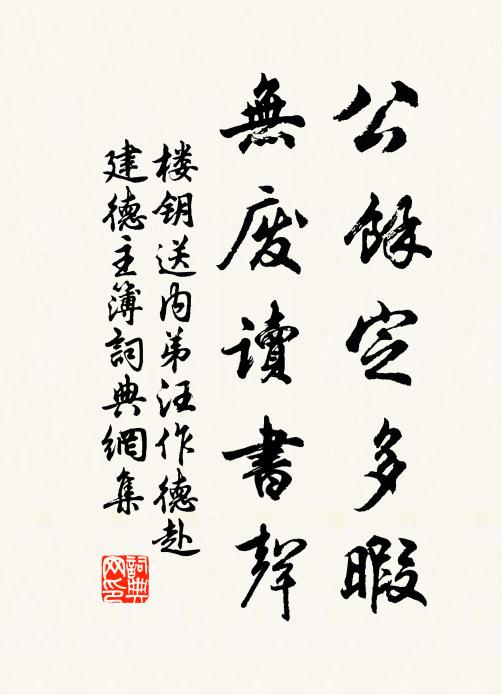 公餘定多暇
無废讀書聲
楼钥送内弟汪作德赴
建德主簿詞典網集
詞典网印